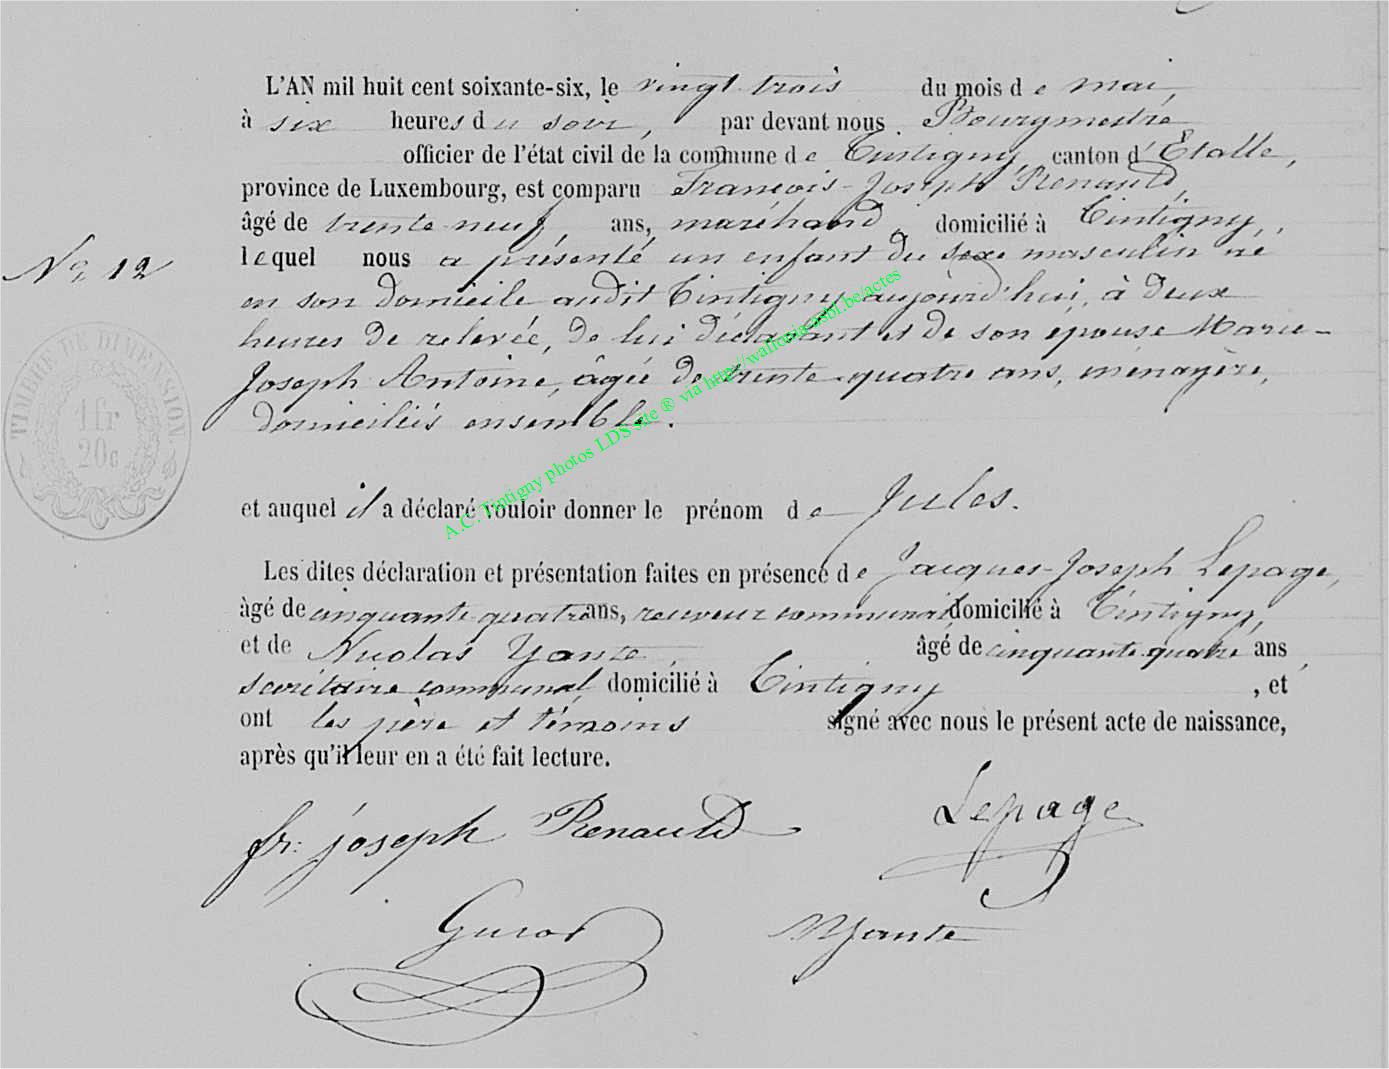 L'AN mil huit cent soixante-six, le vingt trois du mois de mai,
à six heures du soir, par devant nous Bourgmestre
officier de l'état civil de la commune de Tintigny, canton d'Etalle,
province de Luxembourg, est comparu François-Joseph Renauld,
âgé de trente neuf ans, maréhand, domicilié à Tintigny,
lequel nous a présenté un enfant du sexe masculin né
N° 12
en son domicile audit Tintigny aujourd'hui, à deux
heures de relevée, de lui déclarant et de son épouse Marie-
Joseph Antoine, âgée de trente-quatre ans, ménagère,
domiciliés ensemble.
TIMBRE DE DIMENSION
1 fr
20c
et auquel il a déclaré vouloir donner le prénom de Jules.
Les dites déclaration et présentation faites en présence de Jacques-Joseph Lepage,
âgé de cinquante quatre ans, receveur communal domicilié à Tintigny,
et de Nicolas Yante âgé de cinquante quatre ans,
secrétaire communal domicilié à Tintigny, et
ont les père et témoins signé avec nous le présent acte de naissance,
après qu'il leur en a été fait lecture.
fr: joseph Renauld Lepage
NYante
A.C. Tintigny photos LDS site ® via http://wallonia-asbl.be/actes